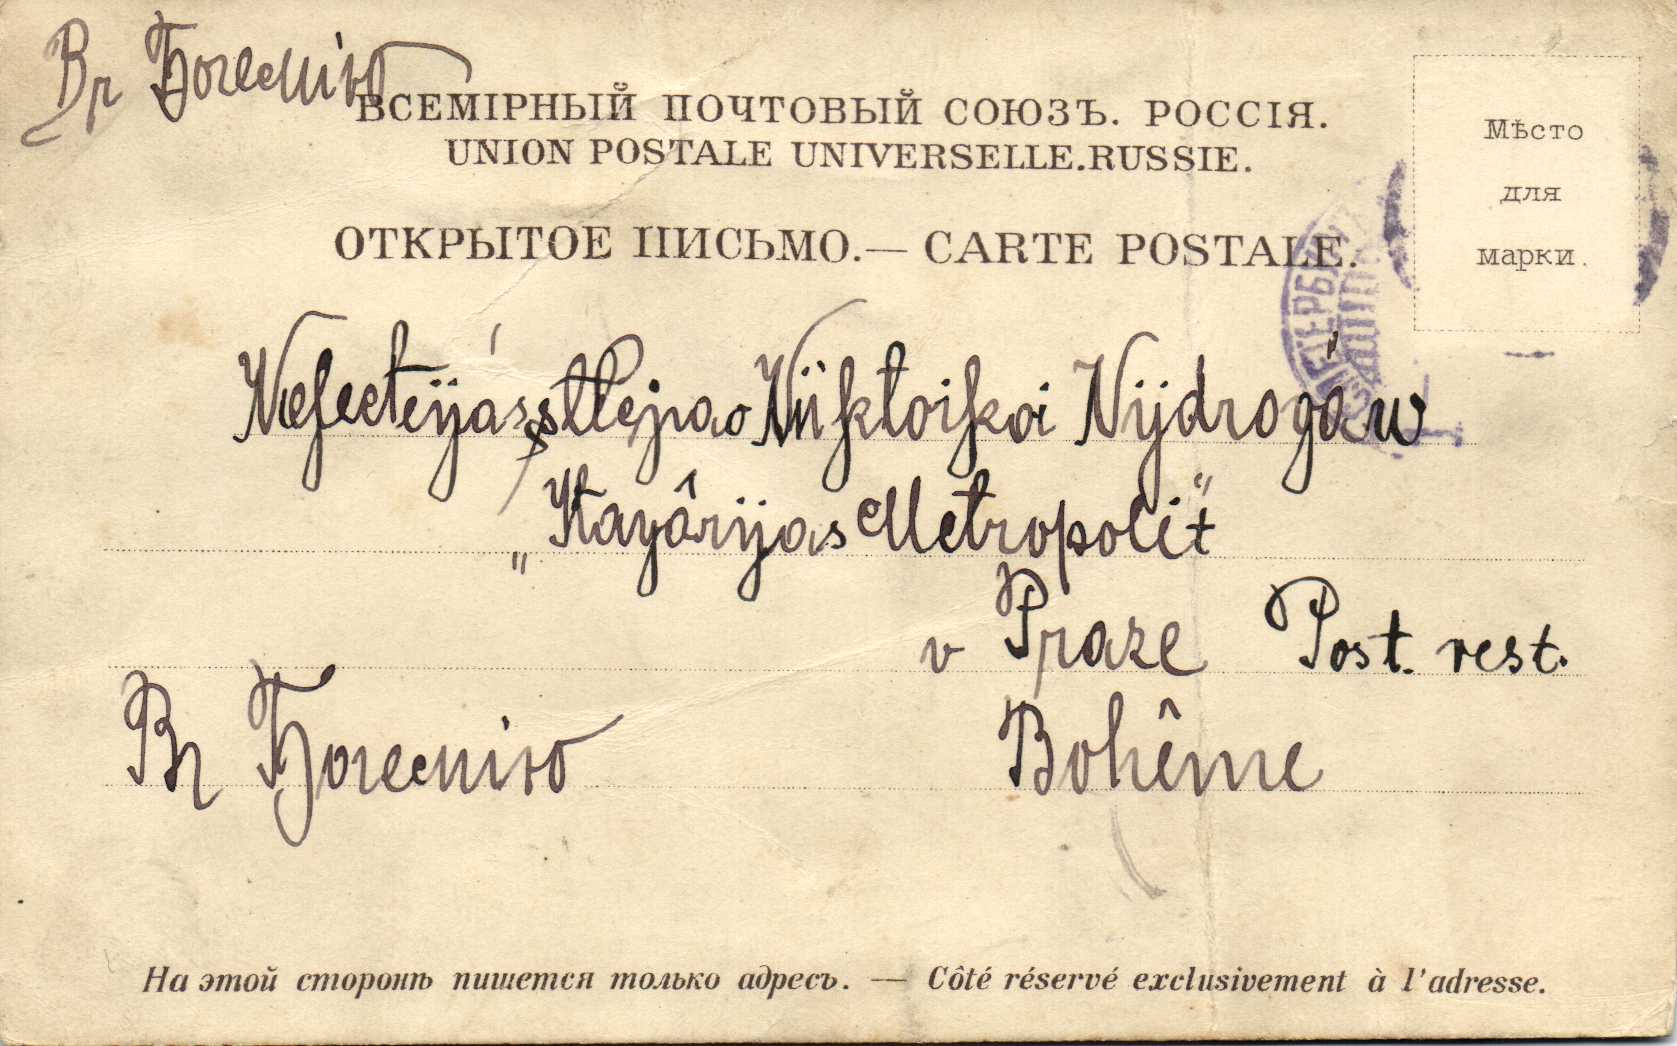 Вг Богемію
ВСЕМІРНЫЙ ПОЧТОВЫЙ СОЮЗЪ. РОССІЯ.
UNION POSTALE UNIVERSELLE.RUSSIE.
Мѣсто
для
марки.
ОТКРЫТОЕ ПИСЬМО.— CARTE POSTALE.
Nijdrogáw
Metropolit"
v Praze Post. rest.
Вг Богемію Bohême
На этой сторонѣ пишется только адресъ. — Côté réservé exclusivement à l'adresse.